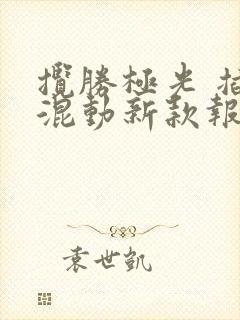 攬勝極光 插
混動新款報
袁世凱